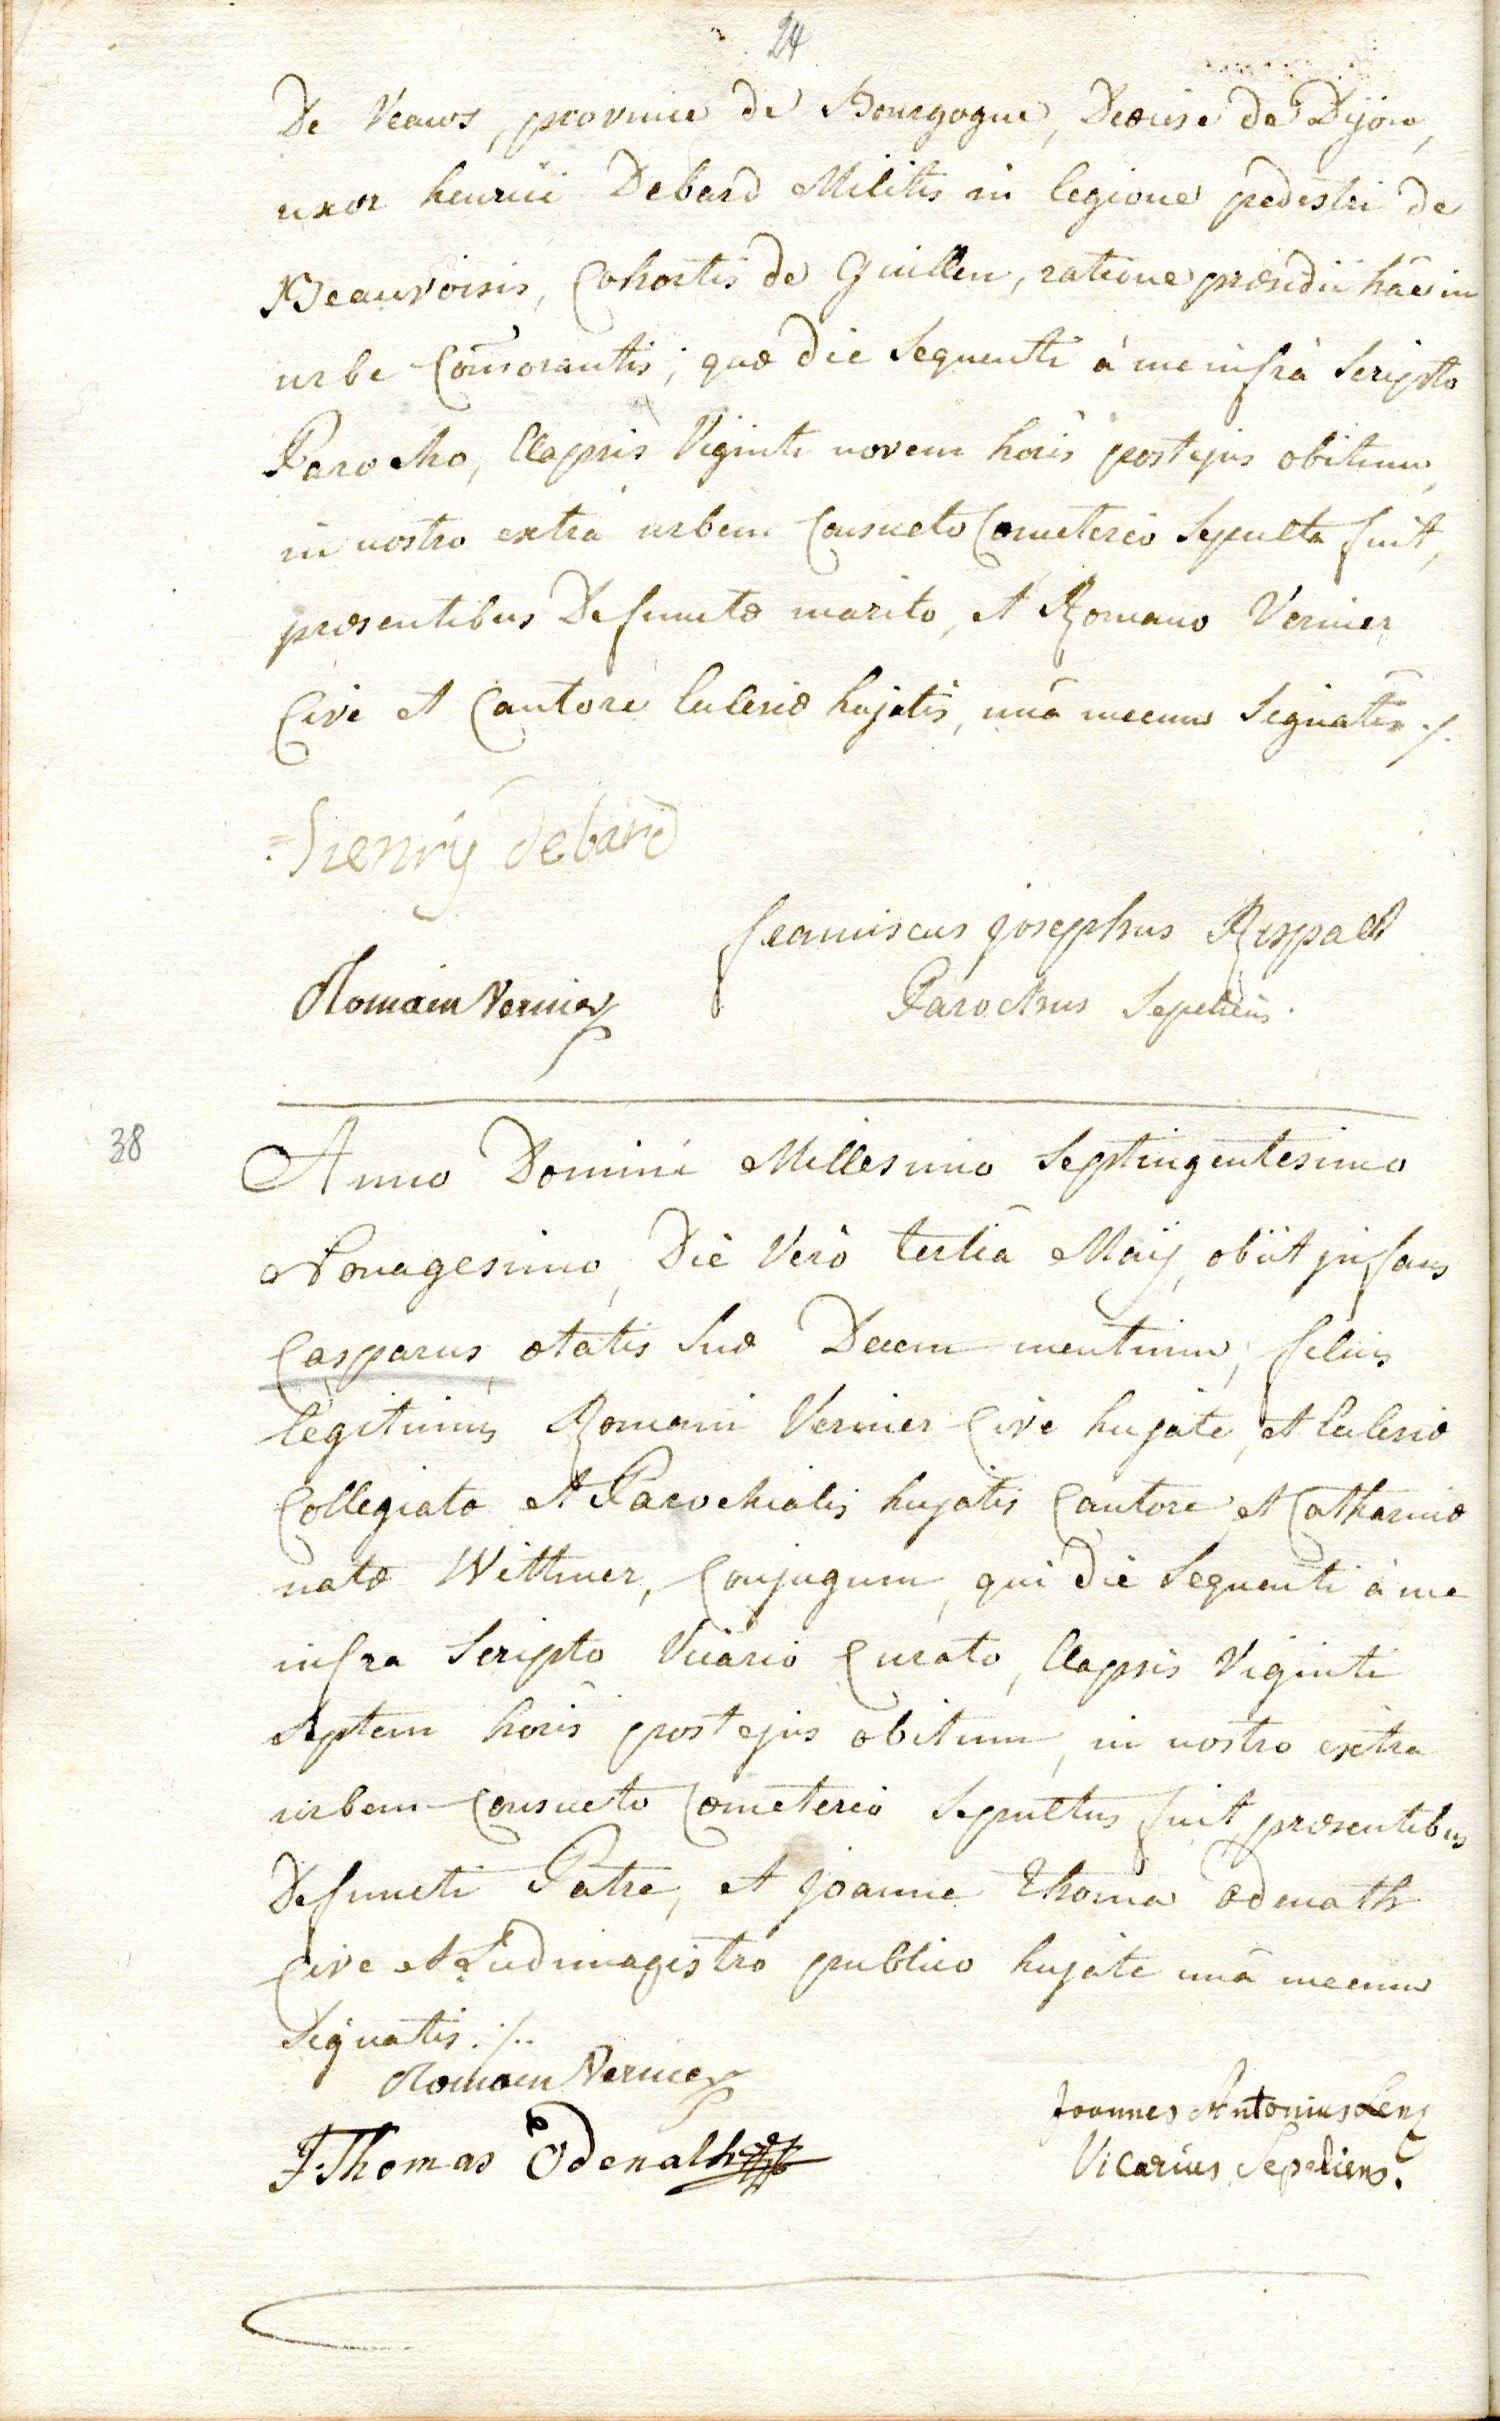 24
De Veaux, province de Bourgogne, Deocise de Dijon,
uxor henrici Debard Militis in legione pedestri de
Beauvoisis, Cohortis de Guillen, ratione præsidii hâc in
urbe Com̄orantis; quæ die sequenti à me infrà scripto
Parocho, Elapsis Viginti novem horis post ejus obitum,
in nostro extra urbem Consueto Cometerio Sepulta fuit,
præsentibus Defunctæ marito, et Romano Vernier
Cive et Cantore Ecclesiæ hujatis, unâ mecum Signatis ./.
henry debard
franciscus josephus Rispalt
Romain Vernier
Parochus Sepeliens.
38
Anno Domini Millesimo Septingentesimo
Nonagesimo, Die Verò tertiâ Maij, obiit infans
Casparus, ætatis suæ Decem mentium, filius
legitimus Romani Vernier Cive hujate, et Ecclesiæ
Collegiatæ et Parochialis hujatis Cantore, et Catharinæ
natæ Wittmer, Conjugum, qui die Sequenti à me
infra Scripto Vicario Curato, Elapsis Viginti
septem horis post ejus obitum, in nostro extra
urbem Consueto Cometerio Sepultus fuit, præsentibus
Defuncti Patre, et joanne Thoma Odenath
Cive et Ludimagistro publico hujate unâ mecum
Signatis ./..
Romain Vernier
Joannes Antonius Lenz
J. Thomas Odenath
Vicarius Sepeliens.